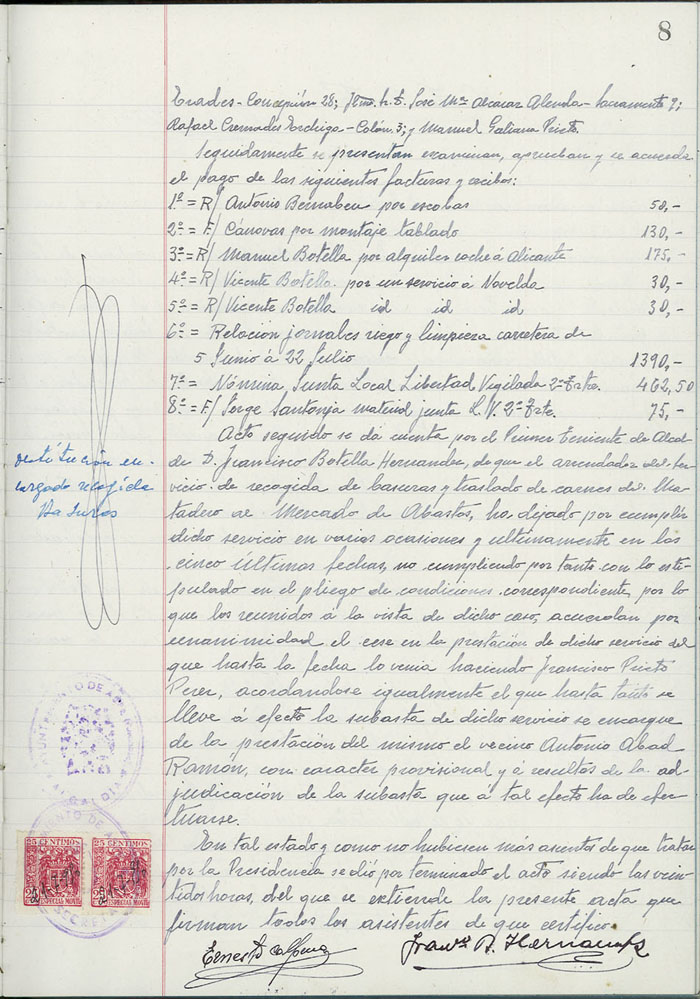 8
Prades - Concepción 28; José Mª Alcaraz Alenda - Sacramento 9;
Rafael Cremades - Colón, 3; y Manuel Galiana Prieto.
Seguidamente se presentan examinan, aprueban y se acuerda
el pago de las siguientes facturas y recibos:
1º = R/ Antonio Bernabeu por escobas 50,-
2º = F/ Cánovas por montaje tablado 130,-
3º = R/ Manuel Botella por alquiler coche á Alicante 175,-
4º = R/ Vicente Botella por un servicio á Novelda 30,-
5º = R/ Vicente Botella id id id 30,-
6º = Relación jornales riego y limpieza carretera de
5 Junio á 22 Julio 1390,-
7º = Nómina Junta Local Libertad Vigilada 2º Trte. 462,50
8º = F/ Jorge Santonja material junta L.V. 2º Trte. 75,-
Acto seguido se dá cuenta por el Primer Teniente de Alcal-
de D. Francisco Botella Hernandez, de que el arrendador del ser-
vicio de recogida de basuras y traslado de carnes del Ma-
tadero al Mercado de Abastos, ha dejado por cumplir
dicho servicio en varias ocasiones y ultimamente en las
cinco últimas fechas, no cumpliendo por tanto con lo esti-
pulado en el pliego de condiciones correspondiente, por lo
que los reunidos á la vista de dicho caso, acuerdan por
unanimidad el cese en la prestación de dicho servicio del
que hasta la fecha lo venia haciendo Francisco Prieto
Perez, acordandose igualmente el que hasta tanto se
lleve á efecto la subasta de dicho servicio se encargue
de la prestación del mismo el vecino Antonio Abad
Ramón, con caracter provisional y á resultas de la ad-
judicación de la subasta que á tal efecto ha de efec-
tuarse.
En tal estado y como no hubiesen más asuntos de que tratar
por la Presidencia se dió por terminado el acto siendo las vein-
tidos horas, del que se extiende la presente acta que
firman todos los asistentes de que certifico.
Destitución en-
cargado recogida
Basuras
AYUNTAMIENTO DE
25 CENTIMOS 25 CENTIMOS
ESPECIAL MOVIL ESPECIAL MOVIL
Ernesto
Franco B. Hernandez